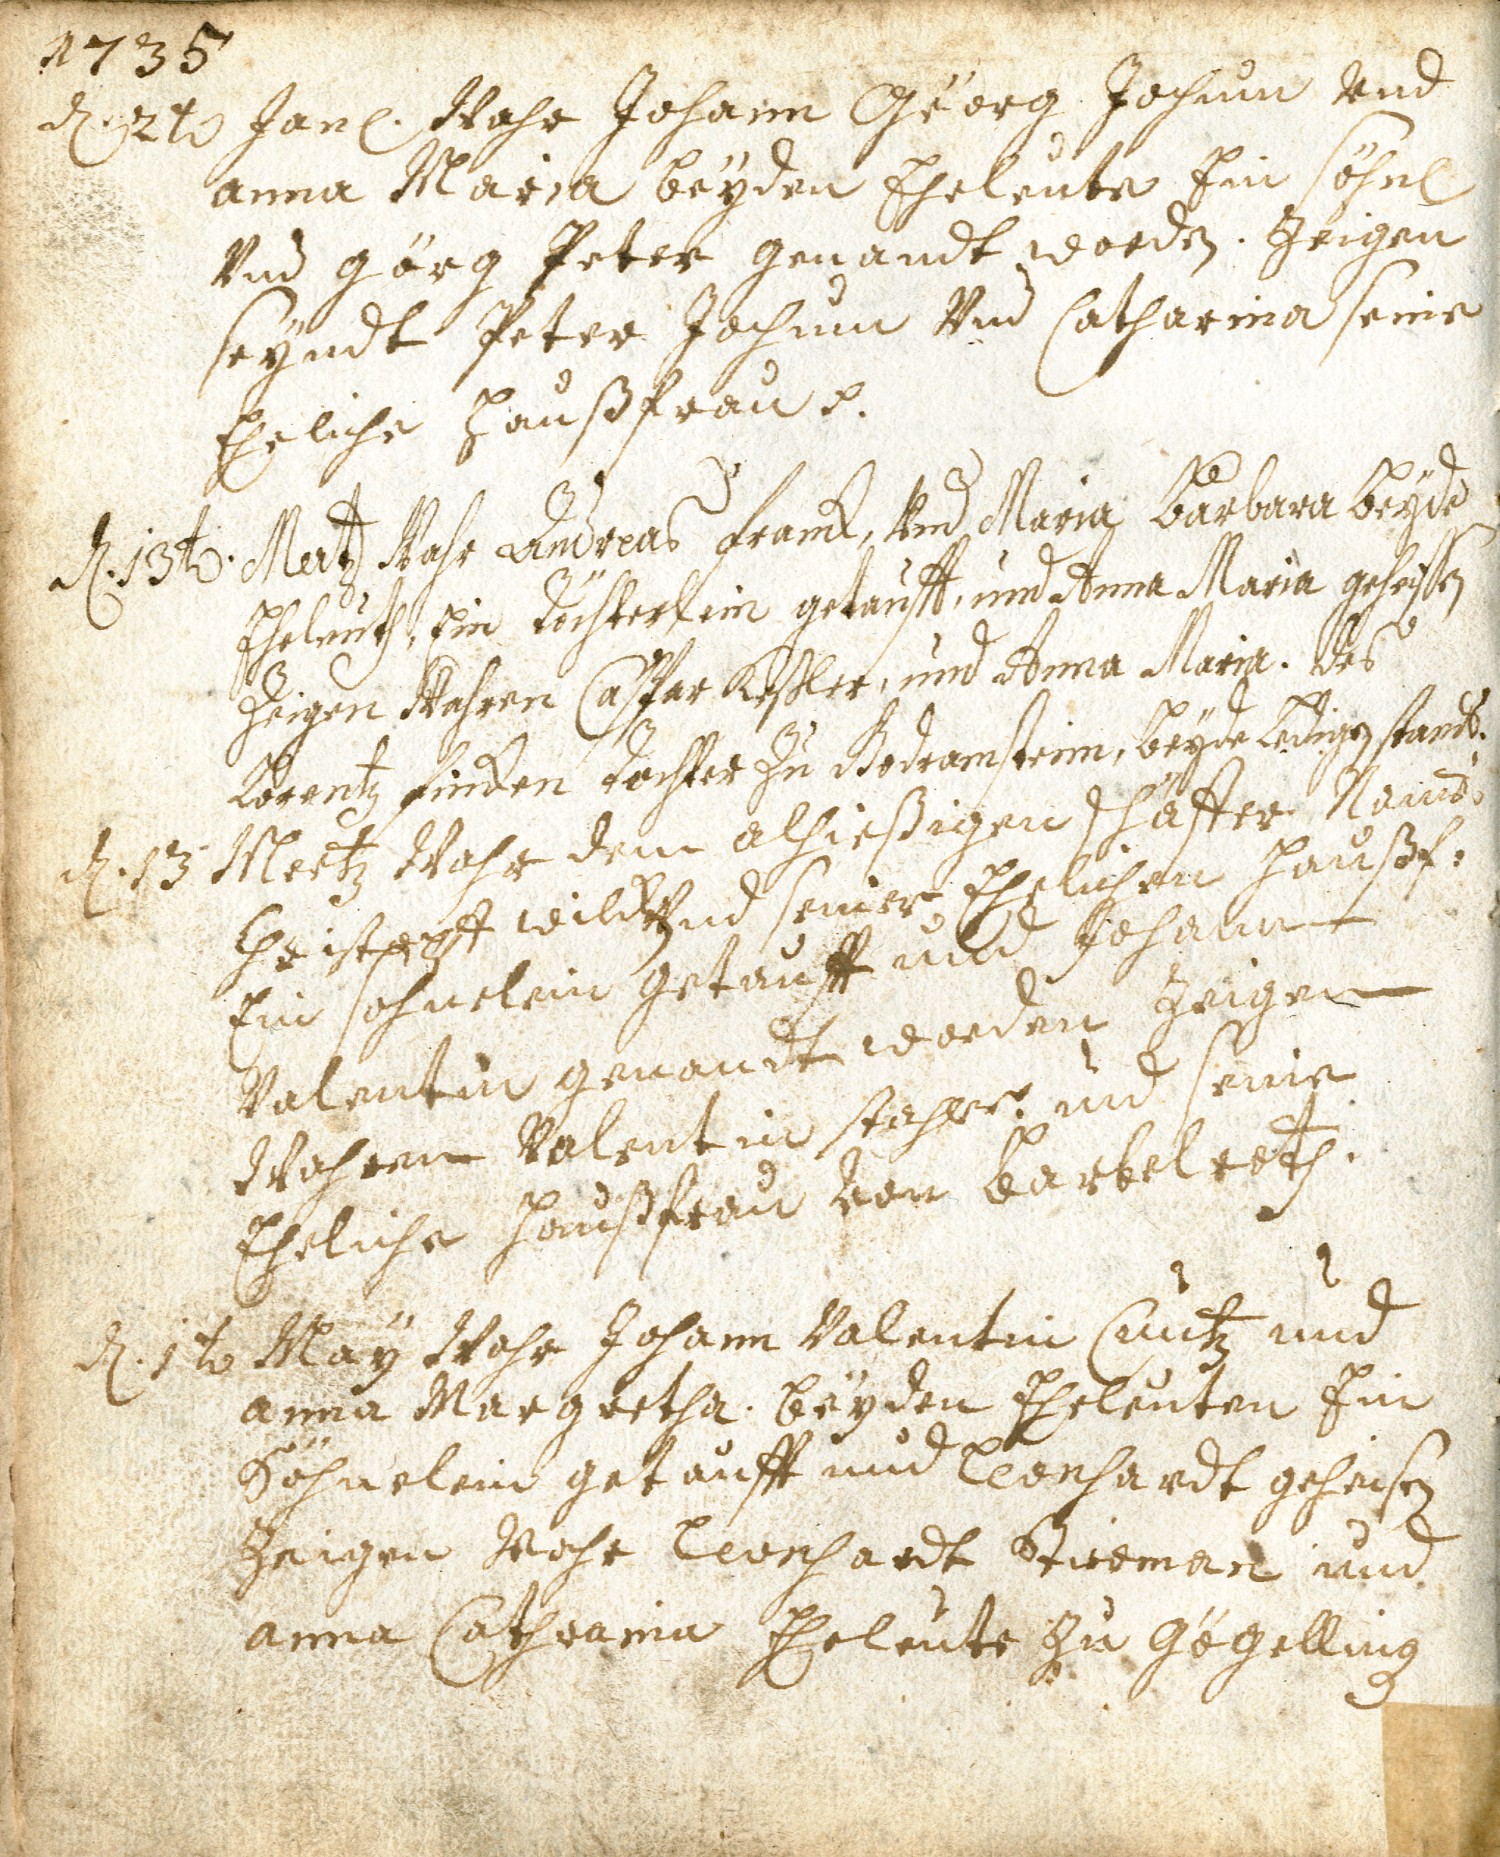 1735
d. 2te Jan. Wahr Johann Géorg Jochum Und
anna Maria beÿden Eheleute Ein söhnl
Und görg Peter genandt worden. Zeigen
seÿndt Peter Jochum Und Catharina seine
Eheliche Haußfrau
d. 13te. Mertz Wahr Andreas Franck, Und Maria Barbara beÿde
Eheleuth, Ein Töchterlein getaufft, und Anna Maria geheissen
Zeigen Wahren Caspar Keßler, und Anna Maria. des
Lorentz Fincken Tochter zu Bodramstein, beÿde Ledigen standts.
d. 13 Mertz Wahr dem alhießigen schäffer Namens
Christofft Und seiner Ehelichen Haußf:
Ein sohnelein getaufft und Johann
Valentin genandt worden Zeigen
Wahren Valentin und seine
Eheliche Haußfrau Von
d. 1te Maÿ Wahr Johann Valentin Cuntz und
anna Margretha. beÿden Eheleuten Ein
Söhnelein getaufft und Leonhardt geheisen
Zeigen Wahr Leonhardt und
anna Cathraina Eheleute Zu Gögelling